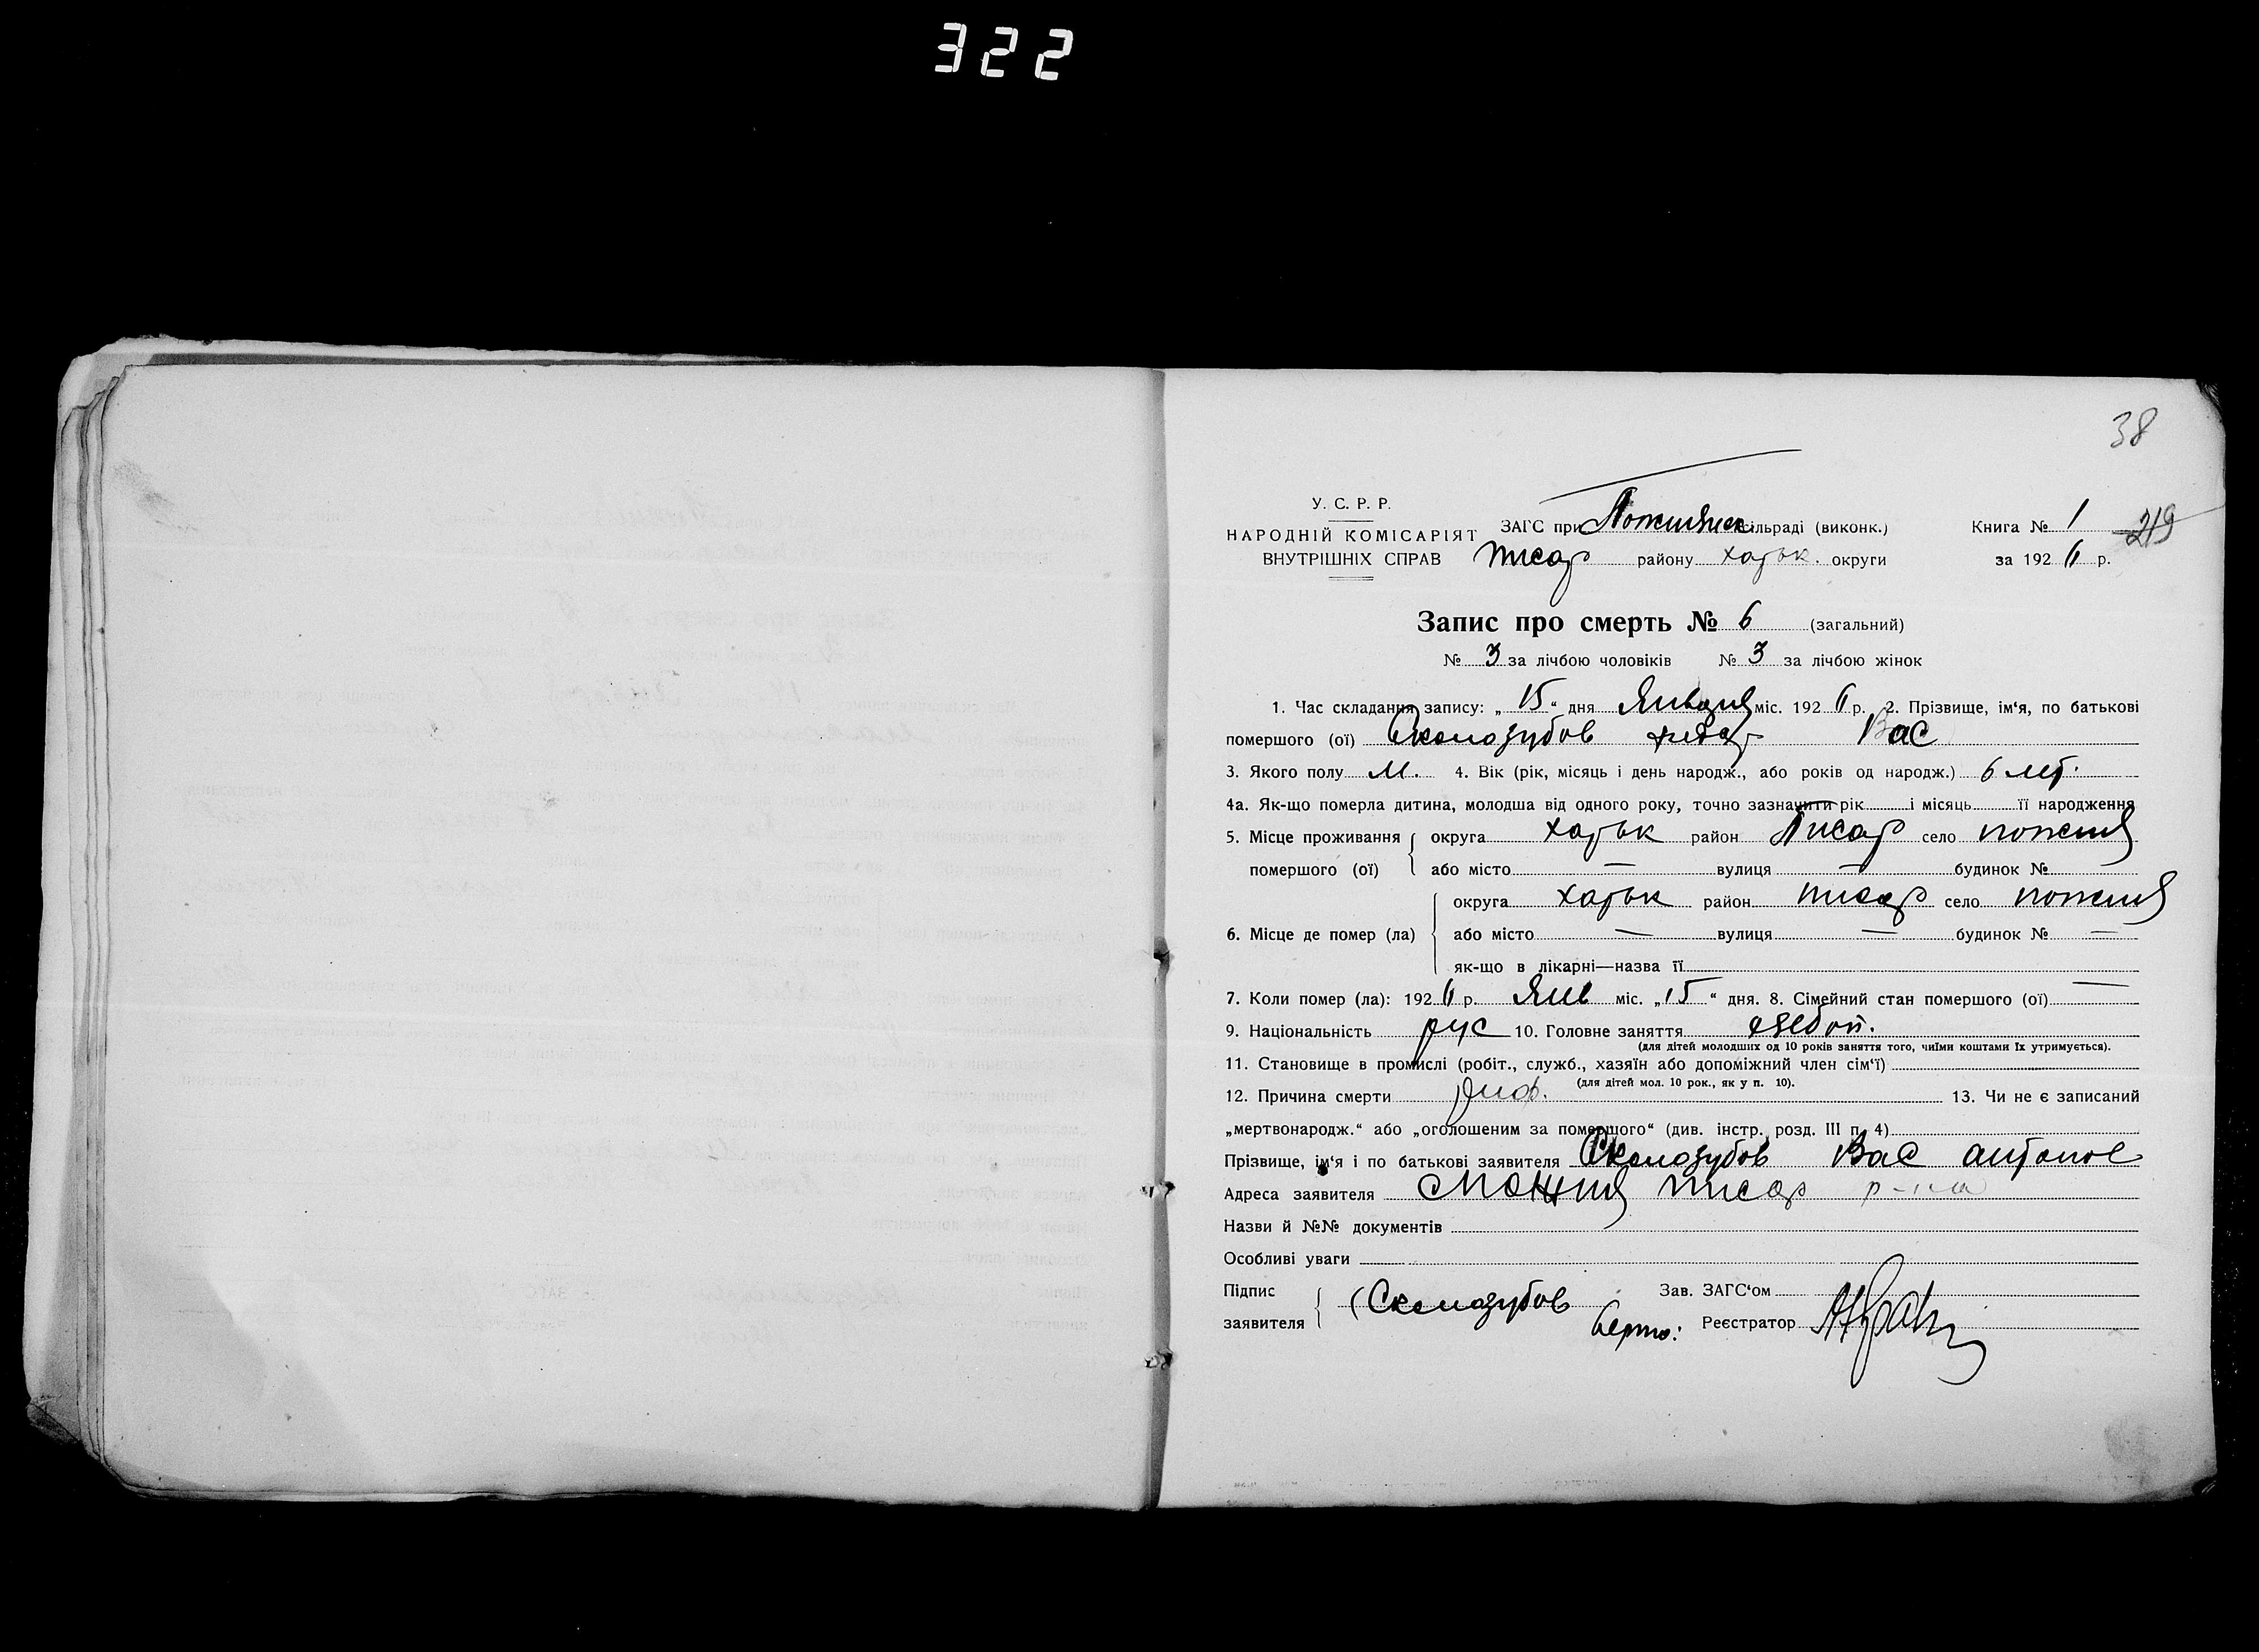 322
38
У. С. Р. Р.
НАРОДНІЙ КОМІСАРІЯТ
ВНУТРІШНІХ СПРАВ
ЗАГС при сільраді (виконк.)
Писар району Харьк. округи
Книга № 1
219
за 1926 р.
Запис про смерть № 6 (загальний)
№ 3 за лічбою чоловіків № 3 за лічбою жінок
1. Час складання запису: „ 15 “ дня Января міс. 1926 р. 2. Прізвище, ім‘я, по батькові
помершого (ої) Скалозубов Вас
3. Якого полу М. 4. Вік (рік, місяць і день народж., або років од народж.) 6 лет.
4а. Як-що померла дитина, молодша від одного року, точно зазначити рік і місяць її народження
5. Місце проживання помершого (ої) округа Харьк район Писар село пожня
або місто — вулиця — будинок № —
6. Місце де помер (ла) округа Харьк район писар село пожня
або місто — вулиця — будинок № —
як-що в лікарні—назва її
7. Коли помер (ла): 1926 р. Янв міс. „ 15 “ дня. 8. Сімейний стан помершого (ої) —
9. Національність рус 10. Головне заняття хлебоп.
(для дітей молодших од 10 років заняття того, чиїми коштами їх утримується).
11. Становище в промислі (робіт., служб., хазяїн або допоміжний член сім‘ї)
(для дітей мол. 10 рок., як у п. 10).
12. Причина смерти 13. Чи не є записаний
„мертвонародж.“ або „оголошеним за помершого“ (див. інстр. розд. III п. 4)
Прізвище, ім‘я і по батькові заявителя Скалозубов Вас антонов
Адреса заявителя писар р-на
Назви й №№ документів
Особливі уваги
Підпис заявителя (Скалозубов
Зав. ЗАГС‘ом
Верно: Реєстратор